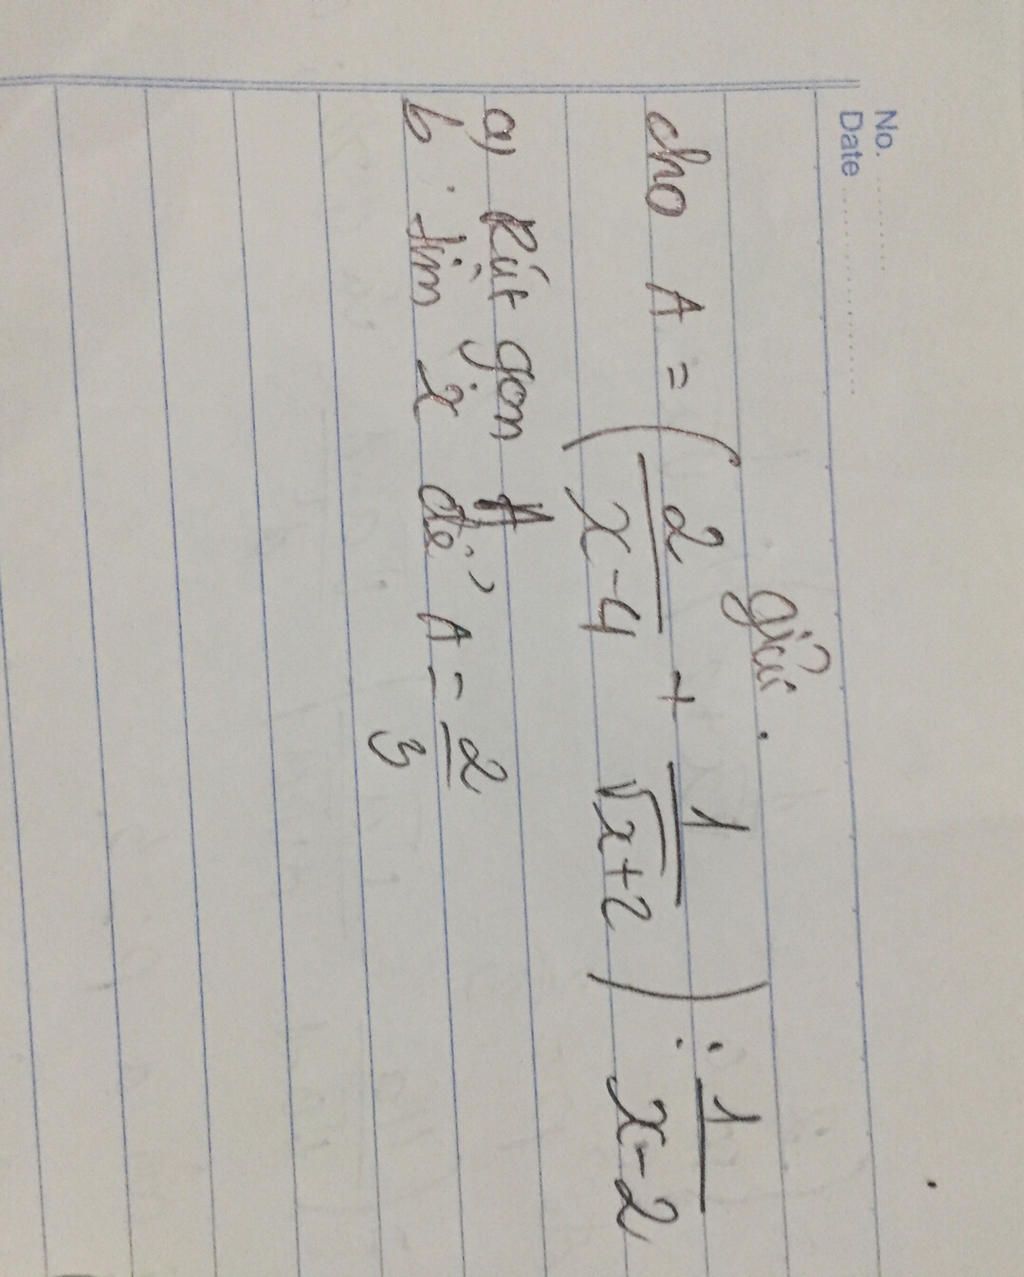 No.
Date
giải.
cho A = ( 2/(x-4) + 1/(√x+2) ) : 1/(x-2)
a) Rút gọn A
b. tìm x để A = 2/3